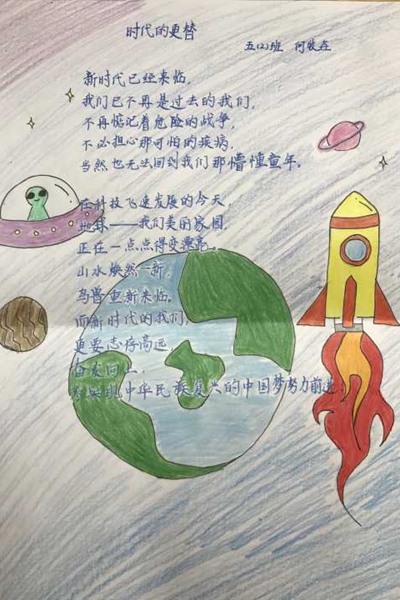 时代的更替
五(2)班 何
新时代已经来临,
我们已不再是过去的我们,
不再惦记着危险的战争,
不必担心那可怕的疾病,
当然也无法回到我们那懵懂童年。
在科技飞速发展的今天,
地球——我们美丽家园,
正在一点点得变漂亮。
山水焕然一新,
鸟兽重新来临。
而新时代的我们,
更要志存高远,
奋发向上,
中华民族复兴的中国梦努力前进!